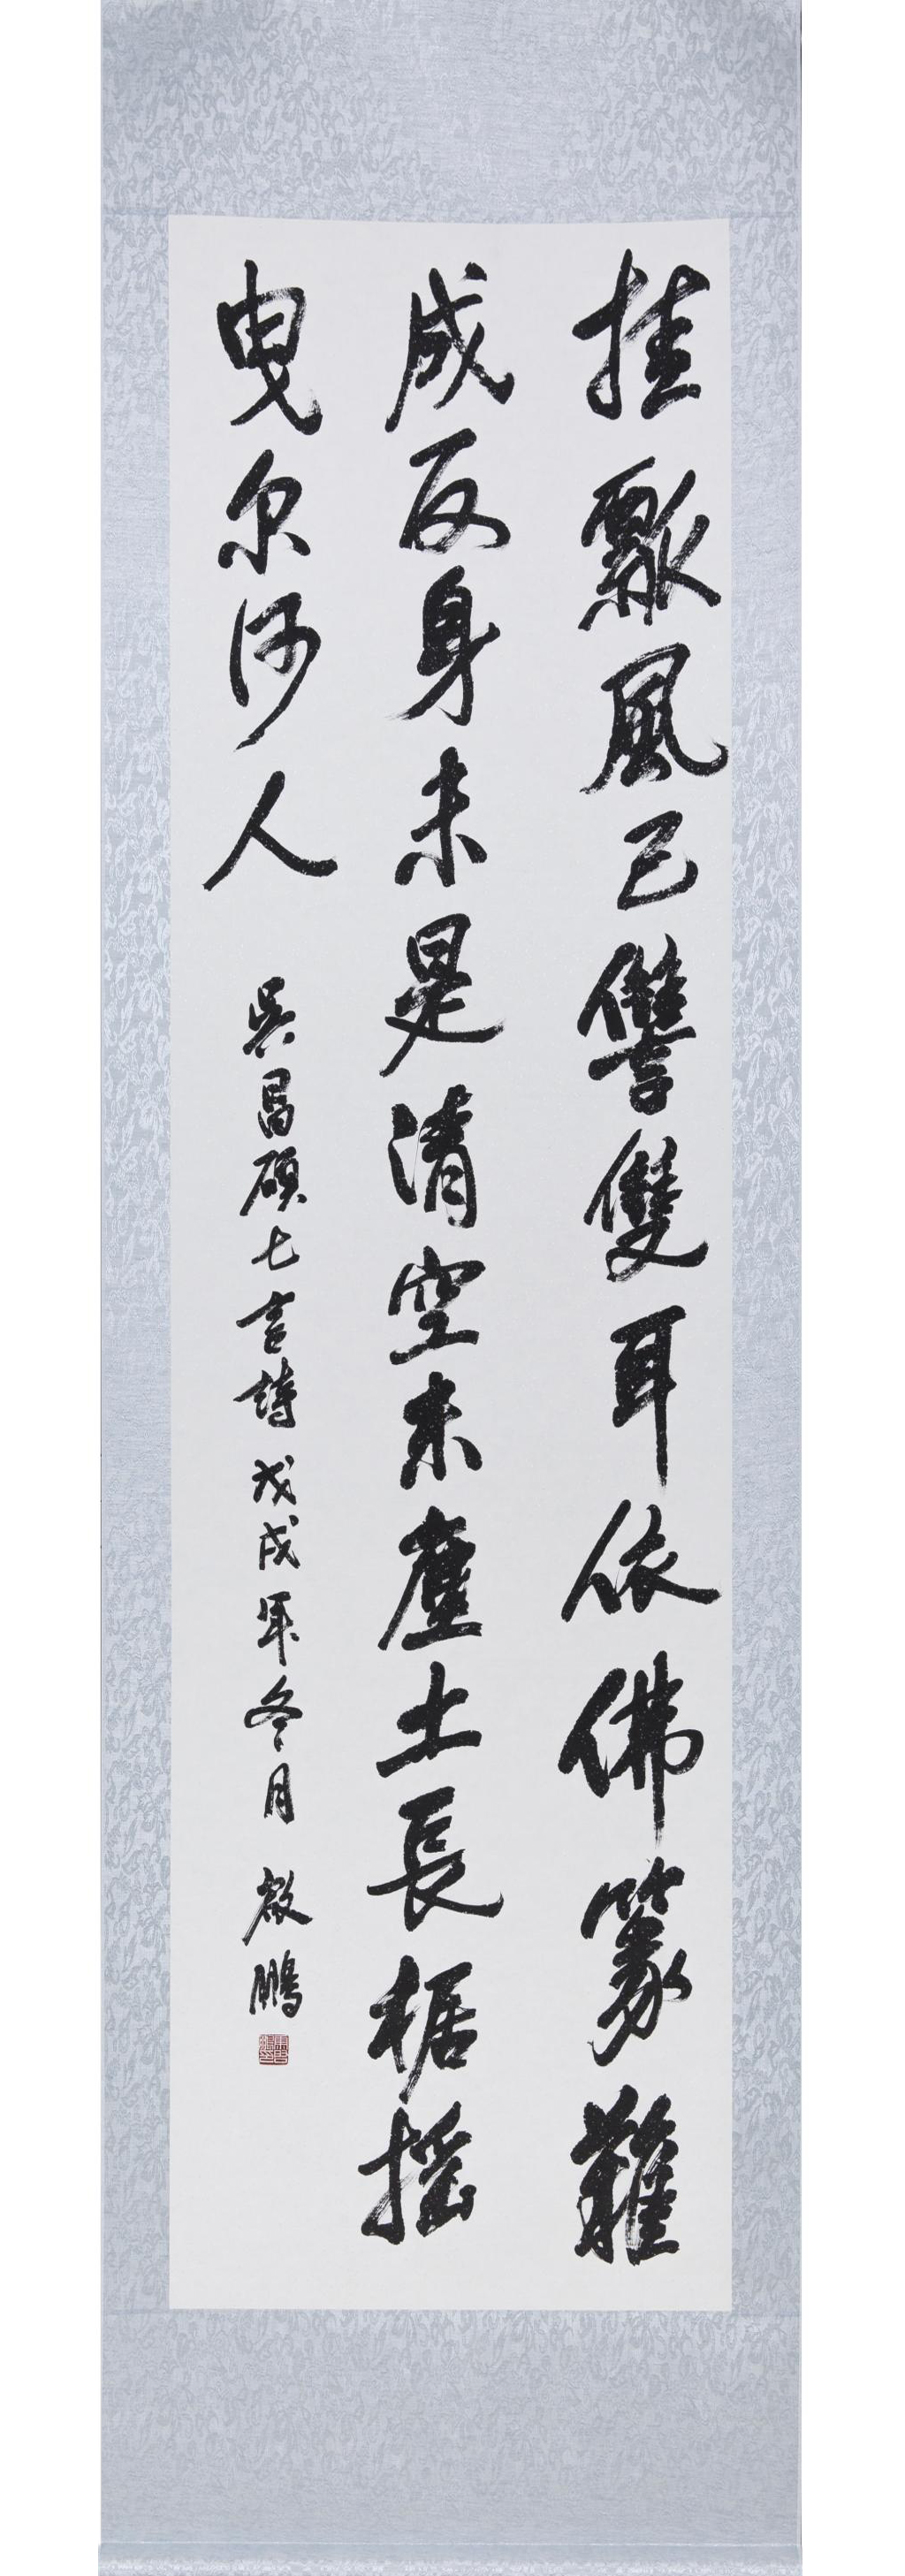 挂瓢風已讐雙耳依佛篆難
成反身未是清空未塵土長椐摇
曳尔何人 吳昌碩七言詩戊戌年冬月 啟鵬